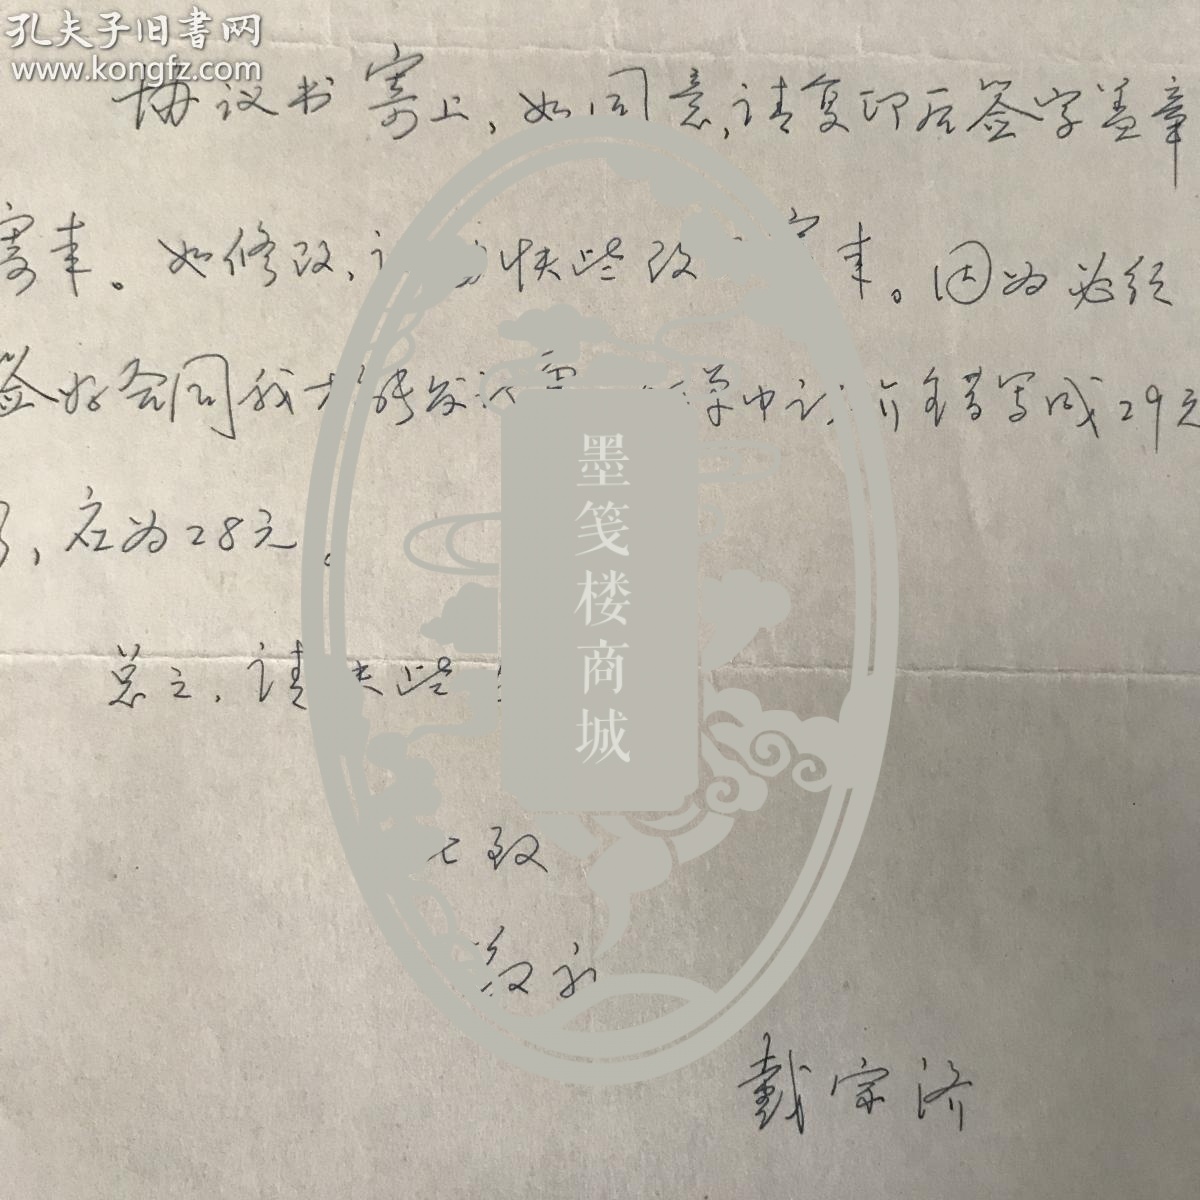 孔夫子旧書网
www.kongfz.com
协议书寄上，如同意，请复印后签字盖章
寄来。如修改，请快些改寄来。因为必须
签好合同我才能发 中 价错写成29元
了，应为28元。
总之，请快些
墨笺楼商城
致
敬礼
戴宗济